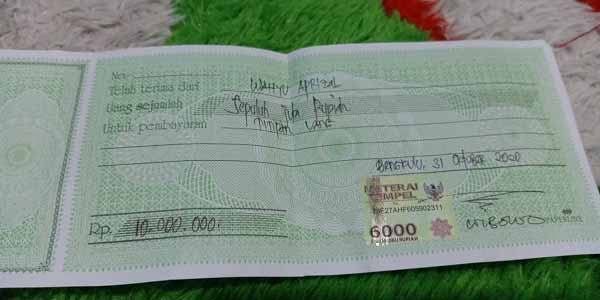 No.
Telah terima dari WAHYU APRIZAL
Uang sejumlah Sepuluh juta Rupiah
Untuk pembayaran TITIPAN UANG
BENGKULU, 31 Oktober 2020
METERAI
TEMPEL
6000
ENAM RIBU RUPIAH
Rp. 10.000.000,-
WIBOWO
PAPERLINE